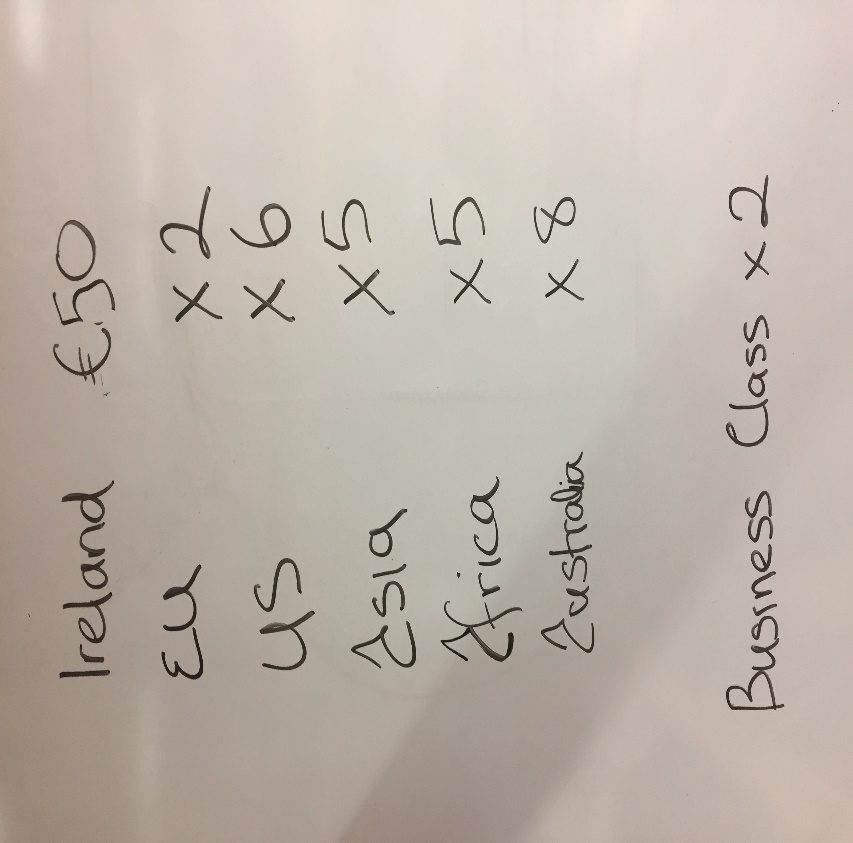 Ireland €50
EU x 2
US x 6
Asia x 5
Africa x 5
Australia x 8
Business Class x 2